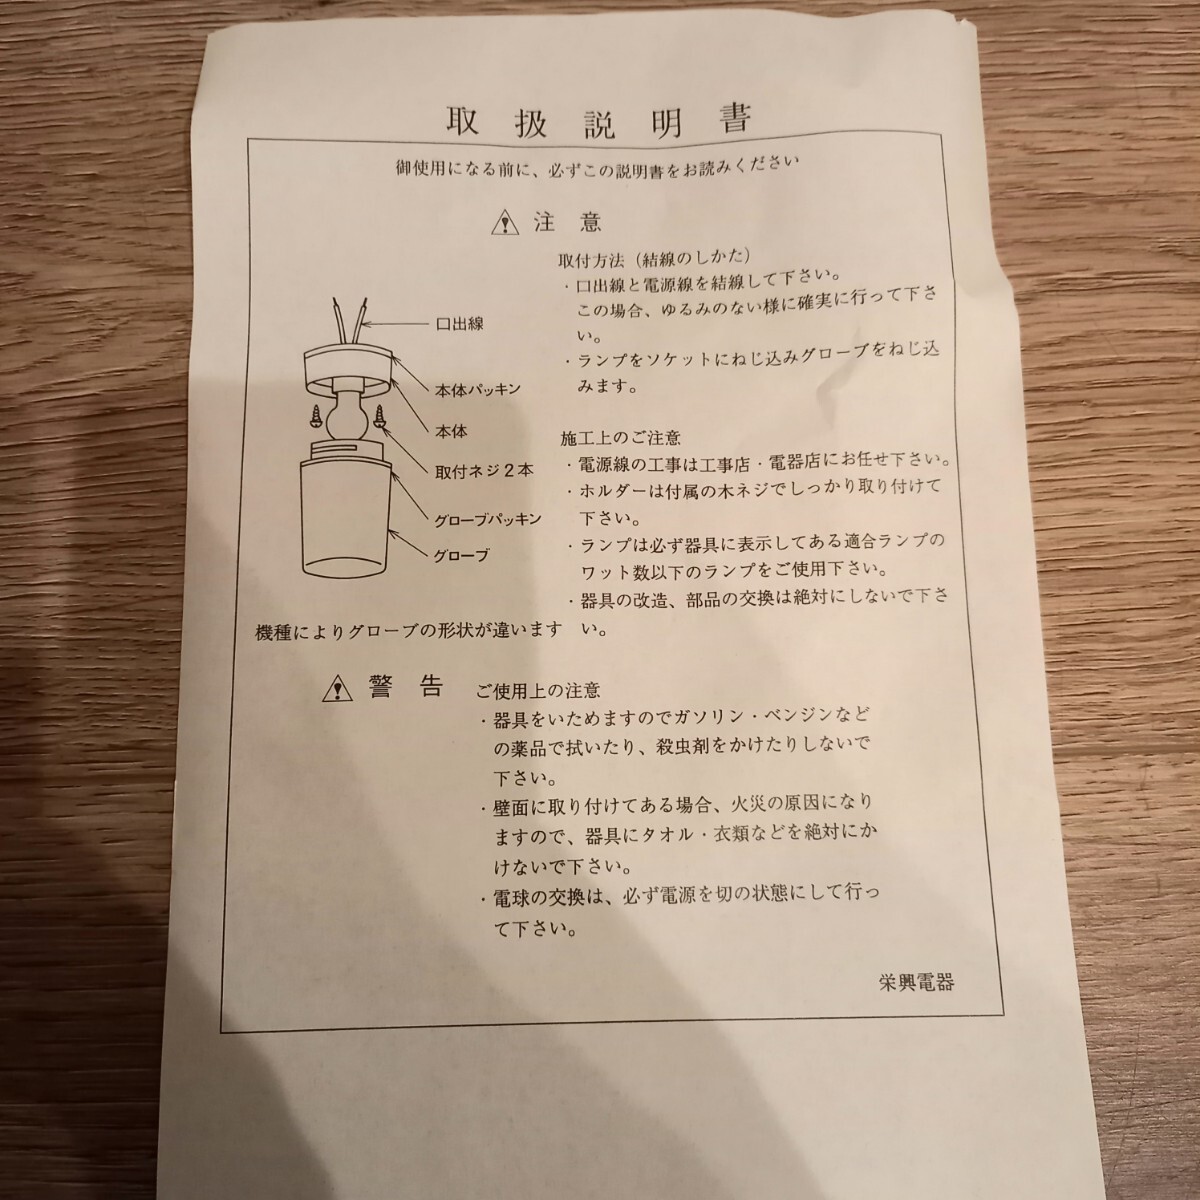 取扱説明書
御使用になる前に、必ずこの説明書をお読みください
注意
取付方法（結線のしかた）
・口出線と電源線を結線して下さい。
この場合、ゆるみのない様に確実に行って下さ
い。
・ランプをソケットにねじ込みグローブをねじ込
みます。
口出線
本体パッキン
本体
取付ネジ２本
グローブパッキン
グローブ
機種によりグローブの形状が違います
施工上のご注意
・電源線の工事は工事店・電器店にお任せ下さい。
・ホルダーは付属の木ネジでしっかり取り付けて
下さい。
・ランプは必ず器具に表示してある適合ランプの
ワット数以下のランプをご使用下さい。
・器具の改造、部品の交換は絶対にしないで下さ
い。
警告
ご使用上の注意
・器具をいためますのでガソリン・ベンジンなど
の薬品で拭いたり、殺虫剤をかけたりしないで
下さい。
・壁面に取り付けてある場合、火災の原因になり
ますので、器具にタオル・衣類などを絶対にか
けないで下さい。
・電球の交換は、必ず電源を切の状態にして行っ
て下さい。
栄興電器